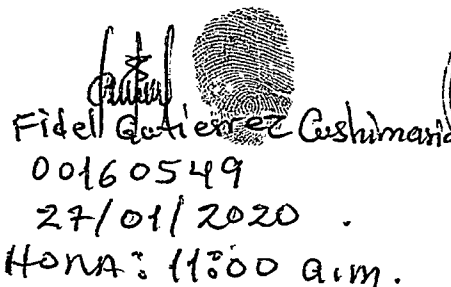 Fidel Gutierrez Cushimari
00160549
27/01/2020 .
HORA: 11:00 a.m.